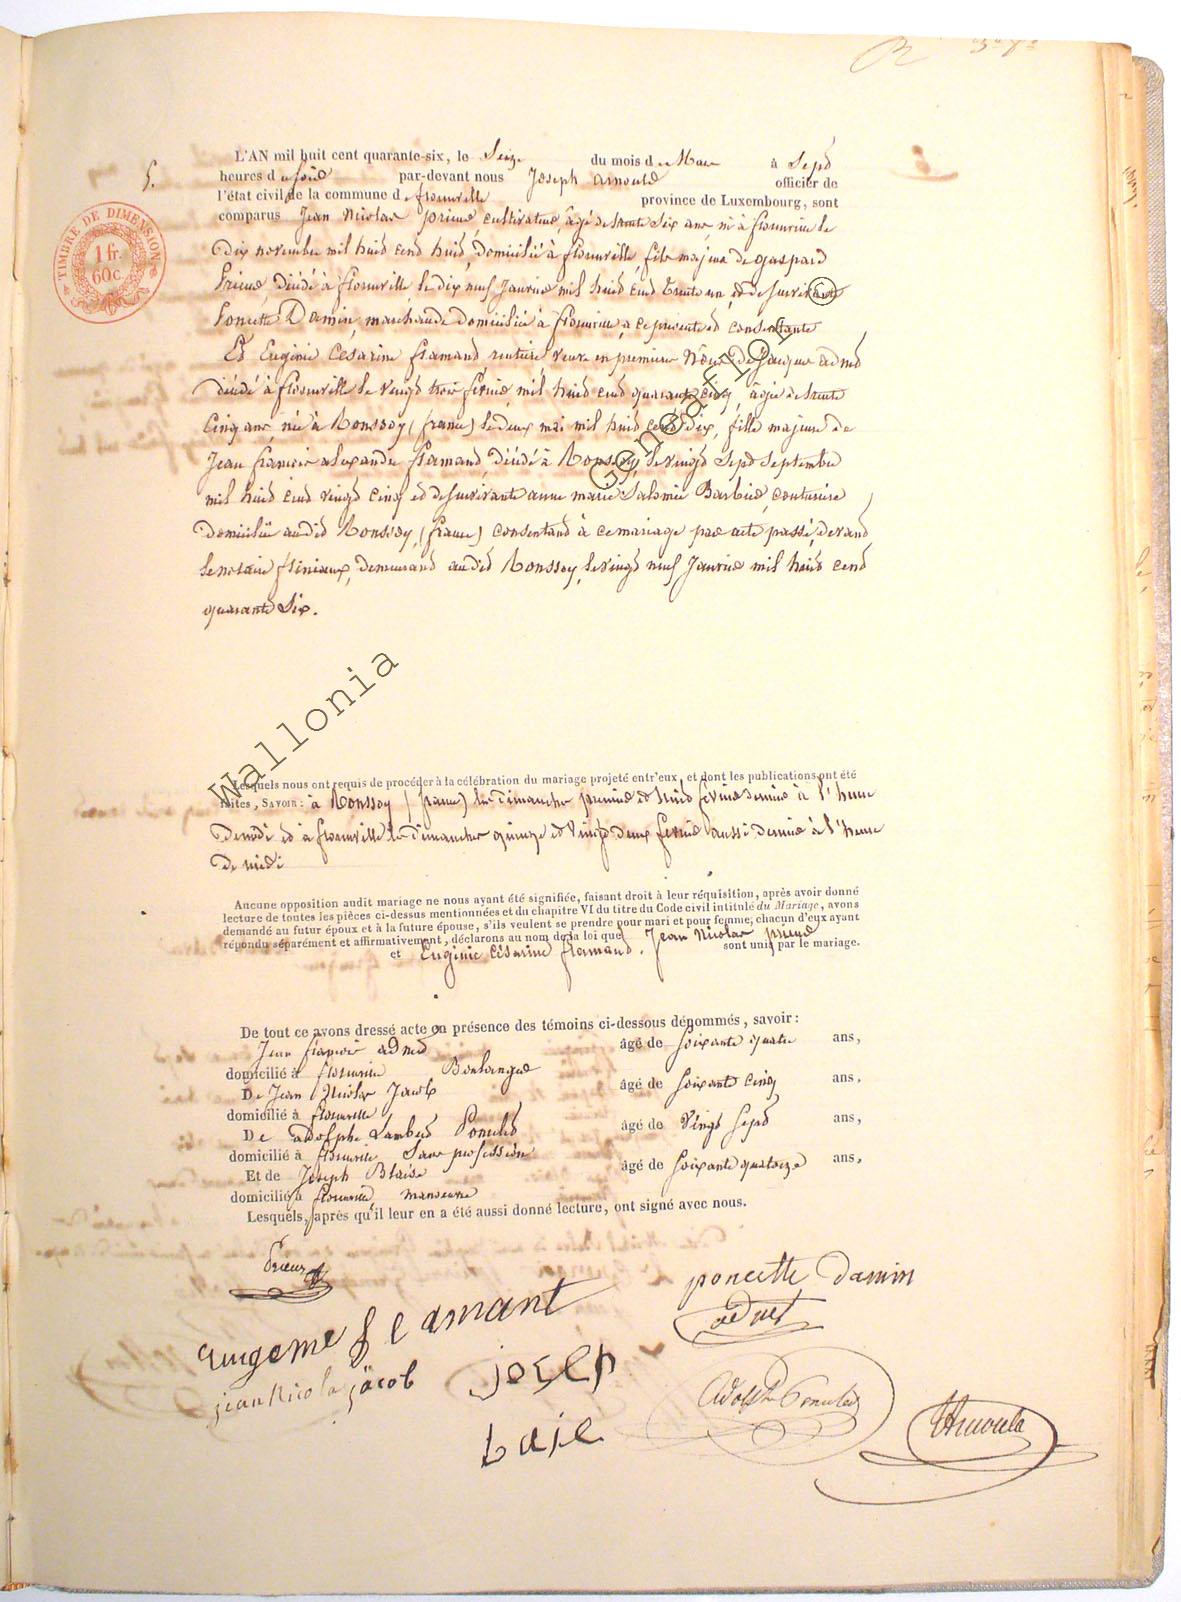 R
5.
TIMBRE DE DIMENSION
1 fr.
60c.
L'AN mil huit cent quarante-six, le Seize du mois de Mars à Sept
heures du soir par-devant nous Joseph Arnould officier de
l'état civil de la commune de florenville province de Luxembourg, sont
comparus Jean Nicolas prieur, cultivateur, âgé de trente six ans, né à florenville le
dix novembre mil huit cent huit, domicilié à florenville, fils majeur de gaspard
Prieur, décédé à florenville, le dix neuf Janvier mil huit cent trente un, et de survivante
Poncette Damin, marchande domiciliée à florenville, à ce présente et consentante
Et Eugénie Césarine flamand rentière veuve en premières Nôces de Jacques adnet
décédé à florenville le vingt trois février mil huit cent quarante cinq, âgée de trente
Cinq ans, née à Ronssoy (france) le deux mai mil huit cent dix, fille majeure de
Jean françois alexandre flamand, décédé à Ronssoy, le vingt Sept Septembre
mil huit cent vingt cinq et de survivante anne marie Salomée Barbier, couturière
domiciliée audit Ronssoy, (france) consentant à ce mariage par acte passé devant
le notaire demeurant audit Ronssoy, le vingt neuf Janvier mil huit cent
quarante Six.
Lesquels nous ont requis de procéder à la célébration du mariage projeté entr'eux, et dont les publications ont été
faites, SAVOIR: à Ronssoy (france) les dimanches premier et huit février dernier à l'heure
de midi et à florenville les dimanches quinze et vingt deux février aussi dernier à l'heure
de midi
Aucune opposition audit mariage ne nous ayant été signifiée, faisant droit à leur réquisition, après avoir donné
lecture de toutes les pièces ci-dessus mentionnées et du chapitre VI du titre du Code civil intitulé du Mariage, avons
demandé au futur époux et à la future épouse, s'ils veulent se prendre pour mari et pour femme; chacun d'eux ayant
répondu séparément et affirmativement, déclarons au nom de la loi que Jean Nicolas prieur
et Eugénie Césarine flamand. sont unis par le mariage.
De tout ce avons dressé acte en présence des témoins ci-dessous dénommés, savoir:
Jean françois adnet âgé de soixante quatre ans,
domicilié à florenville Boulanger
De Jean Nicolas Jacob âgé de soixante cinq ans,
domicilié à florenville
De adolphe Lambert Poncelet âgé de vingt sept ans,
domicilié à florenville Sans profession
Et de Joseph Blaise âgé de soixante quatorze ans,
domicilié à florenville, manoeuvre
Lesquels, après qu'il leur en a été aussi donné lecture, ont signé avec nous.
Prieur
poncette damin
adnet
eugeme flamant
jean nicola jacob
josep
baise
Adolphe Poncelet
Arnould
Wallonia Geneafrance ©